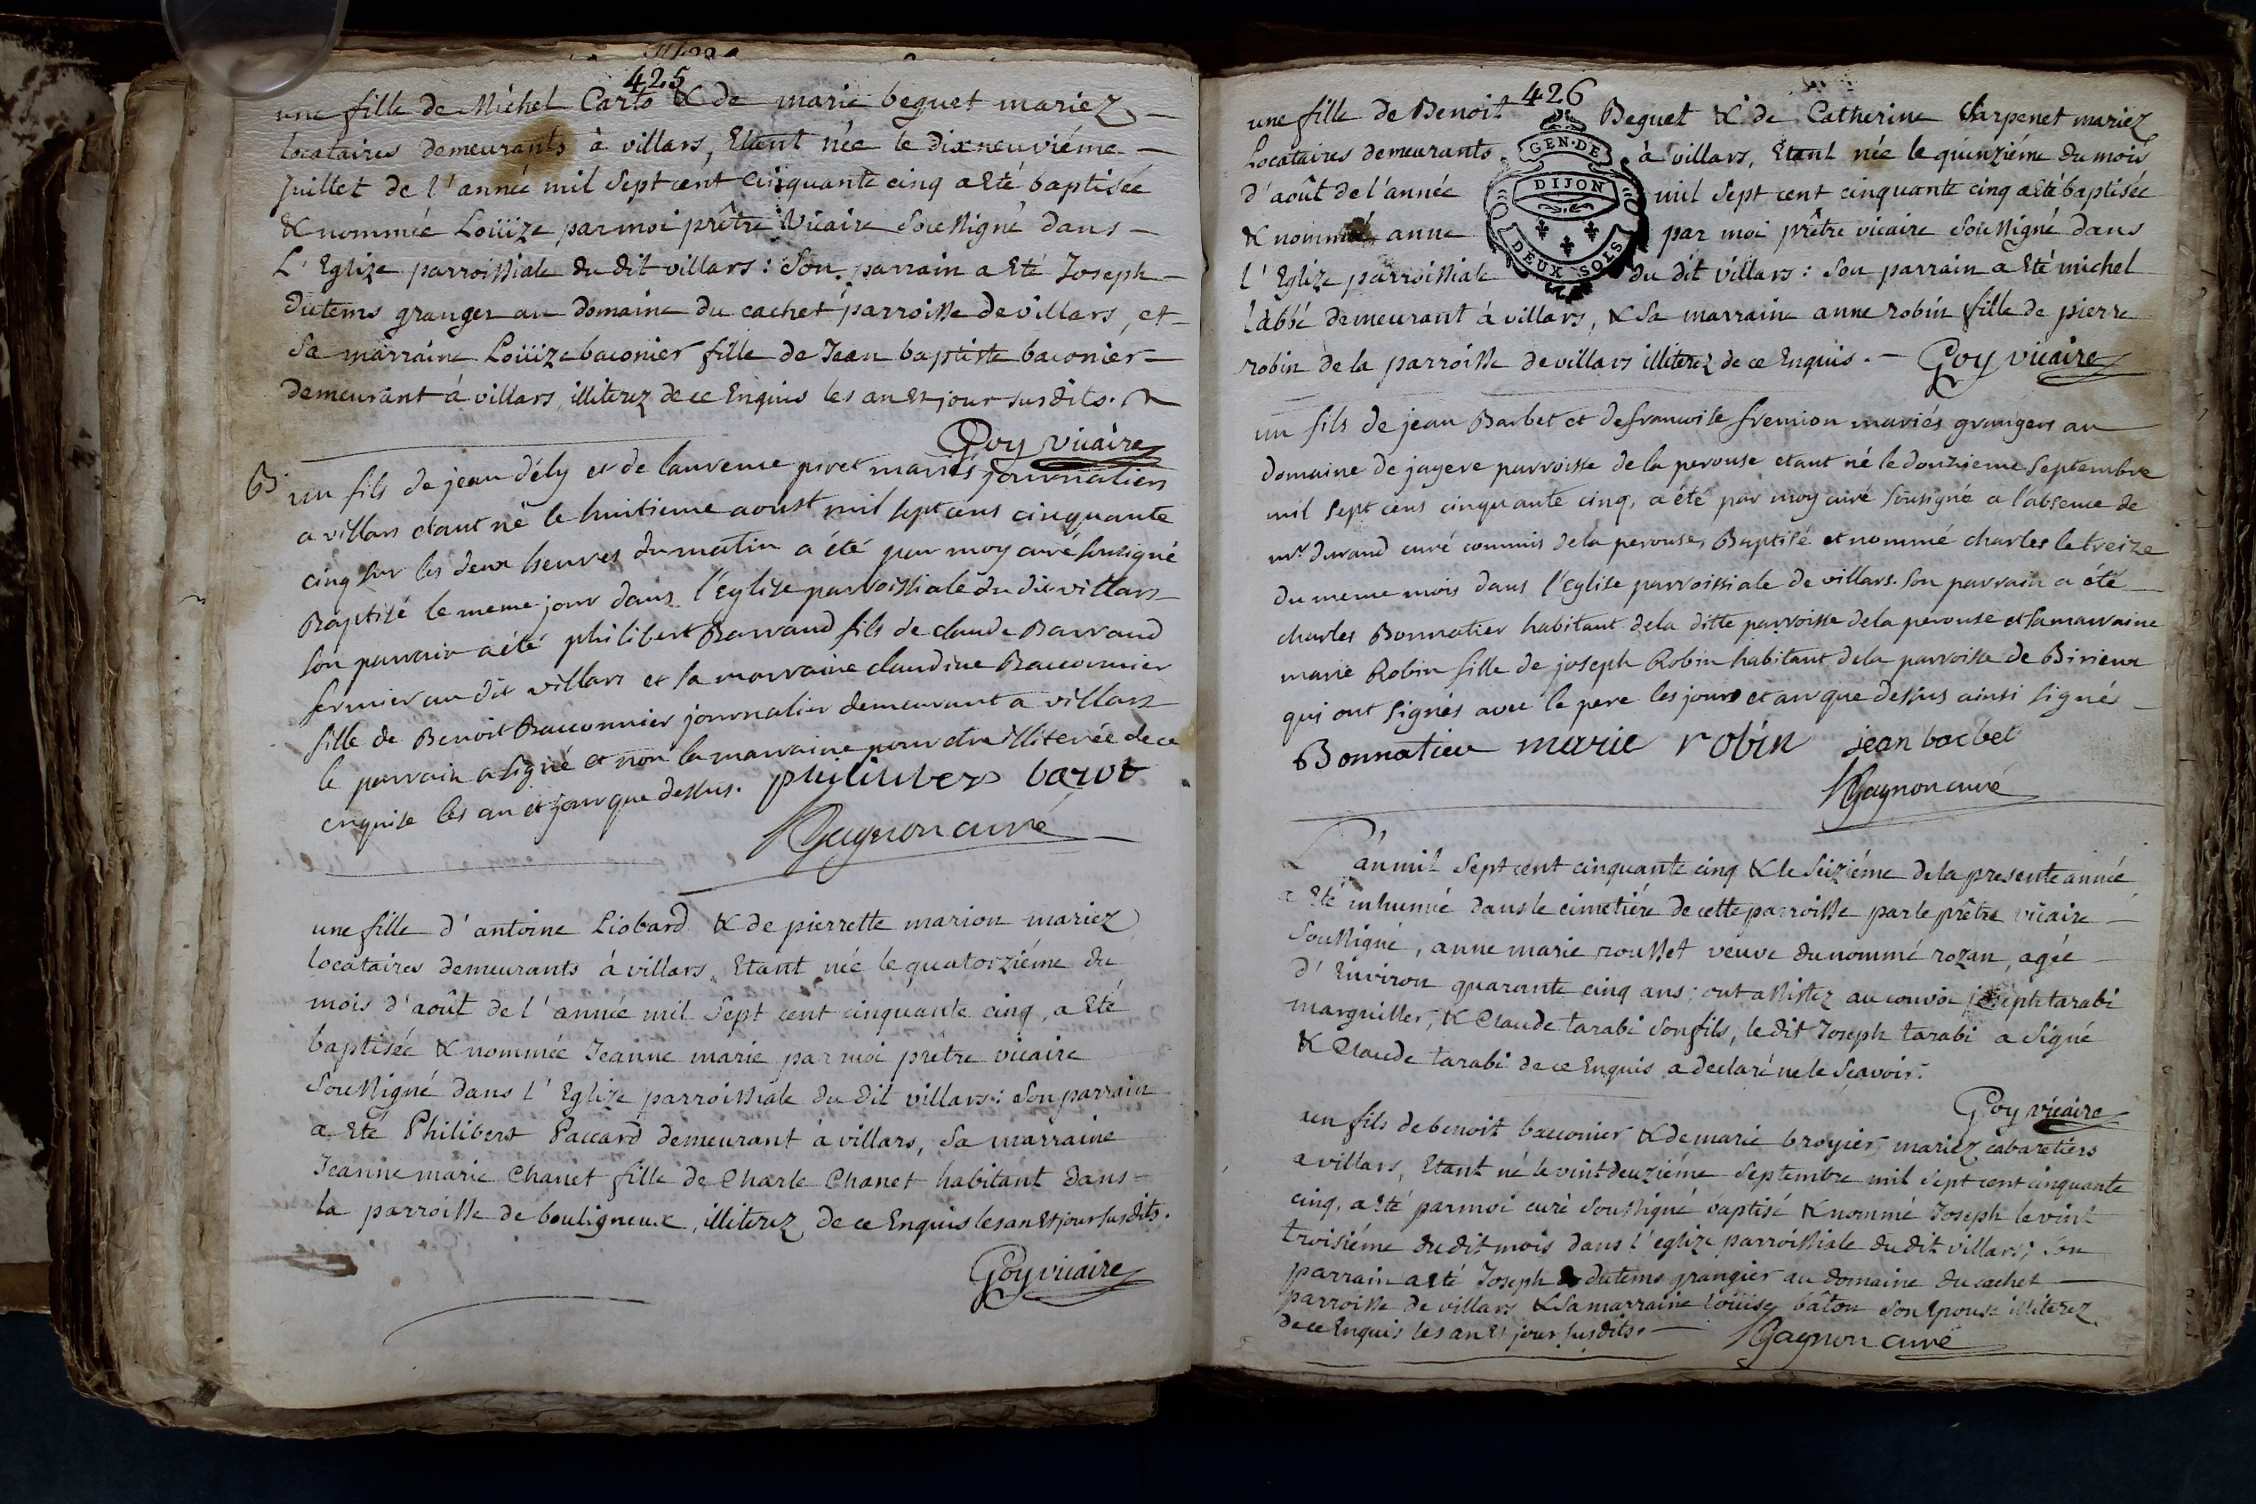 425
une fille de Michel Carlo & de marie beguet mariez
locataires demeurants à villars, Etant née le dixneuviéme
juillet de l'année mil Sept cent Cinquante cinq a Eté baptisée
& nommée Loüize par moi prêtre Vicaire Soussigné dans
L'Eglize parroissiale du dit villars : Son parrain a Eté Joseph
dutems granger au domaine du cachet parroisse de villars, et
Sa marraine Loüize baconier fille de Jean baptiste baconier
demeurant à villars, illiterez de ce Enquis les an Et jour susdits.
Goy vicaire
B
un fils de jean dély et de laurence piret mariés journaliers
a villars etant né le huitieme aoust mil sept cens cinquante
cinq sur les deux heures du matin a été par moy curé sousigné
Baptisé le meme jour dans l'eglise parroissiale du dit villars
son parrain a été philibert Barraud fils de claude Barraud
fermier au dit villars et sa marraine claudine Bauconnier
fille de Benoit Bauconnier journalier demeurant a villars
le parrain a signé et non la marraine pour etre illiterée de ce
enquise les an et jour que dessus. philiubers barot
Gagnon curé
une fille d'antoine Liobard & de pierrette marion mariez
locataires demeurants à villars, Etant née le quatorziéme du
mois d'août de l'année mil Sept cent cinquante cinq, a Eté
baptisée & nommée Jeanne marie par moi prêtre vicaire
Soussigné dans l'Eglize parroissiale du dit villars : Son parrain
a Eté Philibert Paccard demeurant à villars, Sa marraine
Jeanne marie Chanet fille de Charle Chanet habitant dans
la parroisse de bouligneux, illiterez de ce Enquis les an Et jour susdits.
Goy vicaire
426
GEN·DE
DIJON
DEUX SOLS
une fille de Benoit Beguet & de Catherine Sarpenet mariez
Locataires demeurants à villars, Etant née le quinziéme du mois
d'août de l'année mil Sept cent cinquante cinq a Eté baptisée
& nommé anne par moi prêtre vicaire Soussigné dans
l'Eglize parroissiale du dit villars : Son parrain a Eté michel
l'abbé demeurant à villars, & Sa marraine anne robin fille de pierre
robin de la parroisse de villars illiterez de ce Enquis. Goy vicaire
un fils de jean Barbet et de francoise fremion mariés grangers au
domaine de jayere parroisse de la perouse etant né le douzieme Septembre
mil Sept cens cinquante cinq, a été par moy curé sousigné a l'absence de
mr durand curé commis de la perouse, Baptisé et nommé charles le treize
du meme mois dans l'eglise parroissiale de villars. Son parrain a été
charles Bonnatier habitant de la ditte parroisse de la perouse et sa marraine
marie Robin fille de joseph Robin habitant de la parroisse de Birieux
qui ont signés avec le pere les jours et an que dessus ainsi signés
Bonnatieu marie robin jean barbet
Gagnon curé
L'an mil Sept cent cinquante cinq & le Seiziéme de la presente année
a Eté inhumée dans le cimetiére de cette parroisse par le prêtre vicaire
Soussigné, anne marie rousset veuve du nommé rozan, agée
d'Environ quarante cinq ans ; ont assistez au convoi joseph tarabi
marguiller, & Claude tarabi son fils, le dit Joseph tarabi a Signé
& Claude tarabi de ce Enquis a declaré ne le Sçavoir.
Goy vicaire
un fils de benoit bauconier & de marie broyier, mariez cabaretiers
a villars, Etant né le vint deuziéme Septembre mil Sept cent cinquante
cinq, a Eté par moi curé Soussigné baptisé & nommé Joseph le vint
troisiéme du dit mois dans l'eglize parroissiale du dit villars ; Son
parrain a Eté Joseph dutems grangier au domaine du cachet
parroisse de villars & Sa marraine Loüise bâton Son Epouse illiterez
de ce Enquis les an Et jour susdits. Gagnon curé